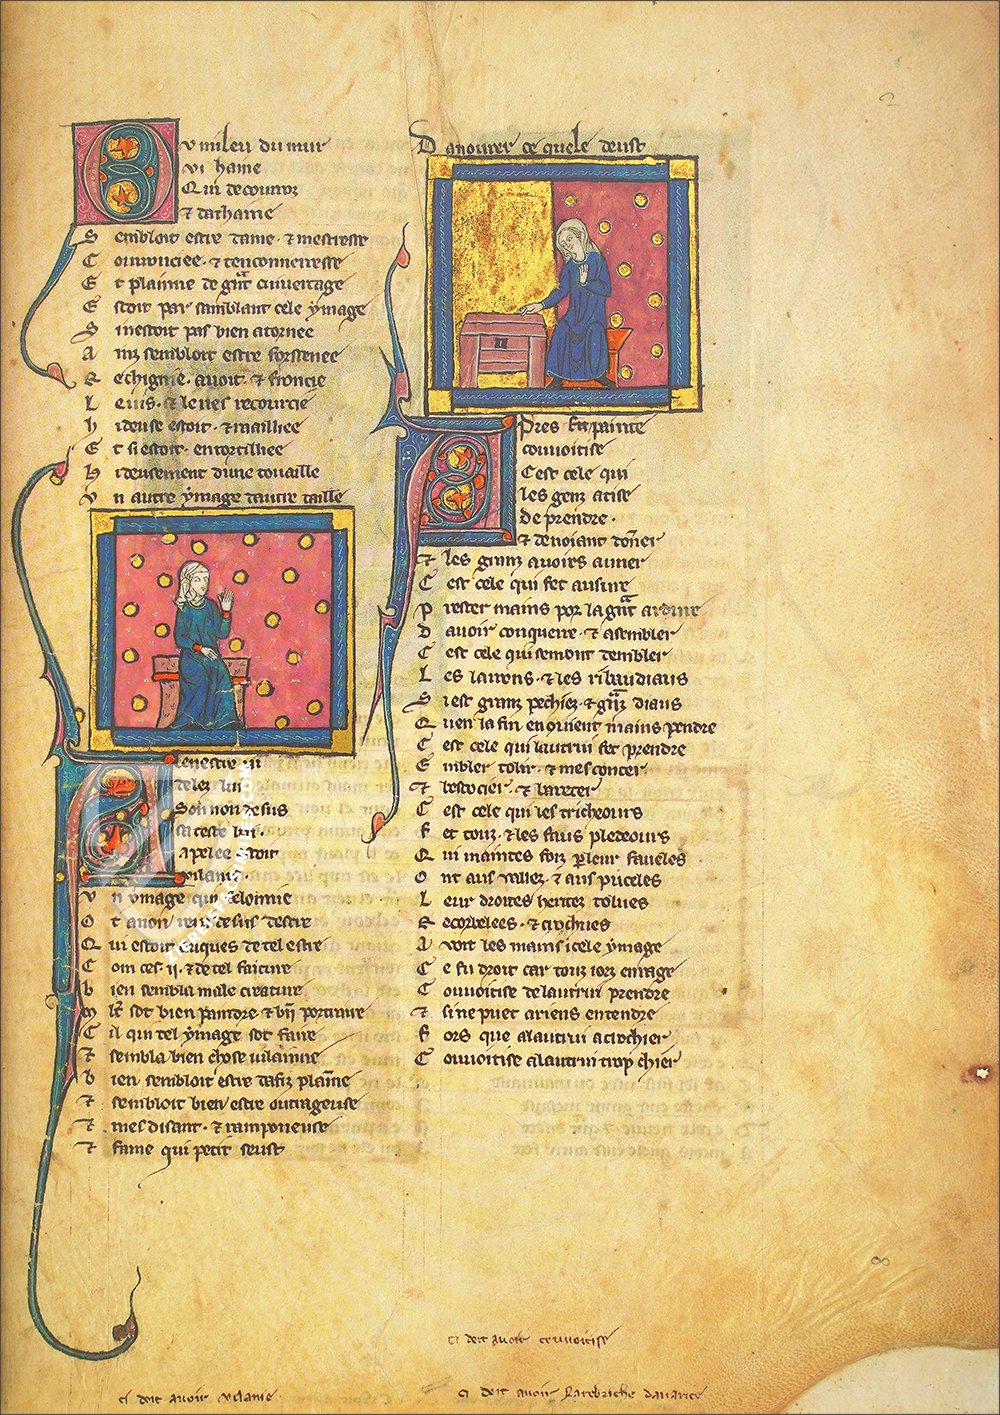 U mileu du mur
vi haine
Qui de courouz
⁊ dathaine
S embloit estre dame ⁊ mestresse
C ourouciee ⁊ tenconneresse
E t plainne de gͣnt cuuertage
E stoit par samblant cele ymage
S i nestoit pas bien atornee
A inz sembloit estre forsenee
R echignie auoit ⁊ froncie
L e uis ⁊ le nes recourcie
H ideuse estoit ⁊
E t si estoit entortilliee
H ideusement dune touaille
V n autre ymage dautre taille
A senestre ui
delez lui
Son non desus
sa teste lui
apelee estoit
uilanie
V n ymage qui felonie
O t a non desus destre
Q ui estoit auques de tel estre
C om ces .ij. ⁊ de tel faiture
b ien sembla male creature
M lt̃ sot bien paindre ⁊ bñ portraire
C il qui tel ymage sot faire
⁊ sembla bien chose uilainne
b ien sembloit estre plainne
⁊ sembloit bien estre outrageuse
⁊ mesdisant ⁊ ramponeuse
⁊ fame qui petit seust
D anourer ce quele deust
Apres fu painte
couuoitise
C est cele qui
les genz atise
de prendre
⁊ de noiant doner
⁊ les granz auoirs auner
C est cele qui fet a usure
P rester mains por la gͣnt ardure
D auoir conquerre ⁊ asembler
C est cele qui semont dembler
L es larrons ⁊ les ribaudiaus
S i est granz pechiez ⁊ gͣnz diaus
Q uen la fin en couient mains pendre
C est cele qui lautrui fet prendre
E mbler tolir ⁊ mesconter
⁊ bescocier ⁊ bareter
C est cele qui les tricheours
F et touz ⁊ les faus pledeours
Q ui maintes foiz par leur faueles
O nt aus uallez ⁊ aus puceles
L eur droites heritez tolues
R ecorbelees ⁊ crochues
A uoit les mains icele ymage
C e fu droit car touz iorz enrage
C ouuoitise de lautrui prendre
⁊ si ne puet a riens entendre
F ors que a lautrui acrochier
C ouuoitise a lautrui trop chier
ci doit auoir couuoitise
ci doit auoir vilanie
ci doit auoir dauarice